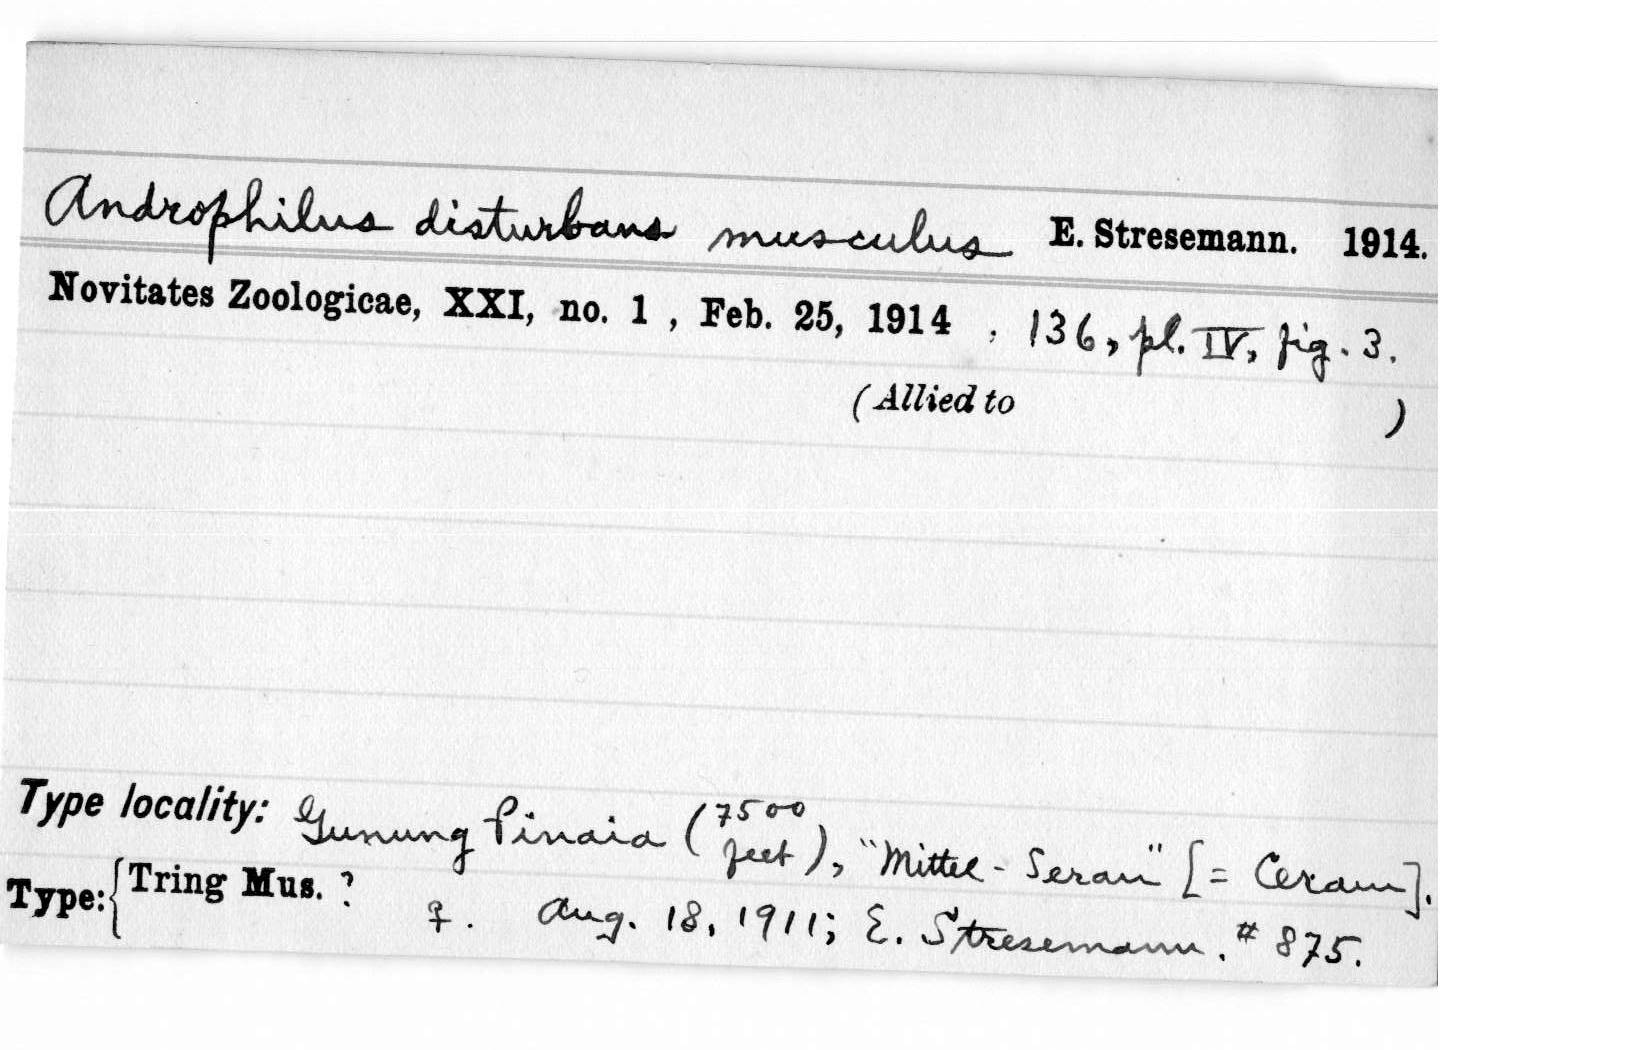 Androphilus disturbans musculus E. Stresemann. 1914.
Novitates Zoologicae, XXI, no. 1 , Feb. 25, 1914 , 136, pl. IV, fig. 3.
(Allied to )
Type locality: Gunung Pinaia (7500 feet), "Mittel-Seran" [= Ceram].
Type: { Tring Mus. ?
♀. Aug. 18, 1911; E. Stresemann. # 875.